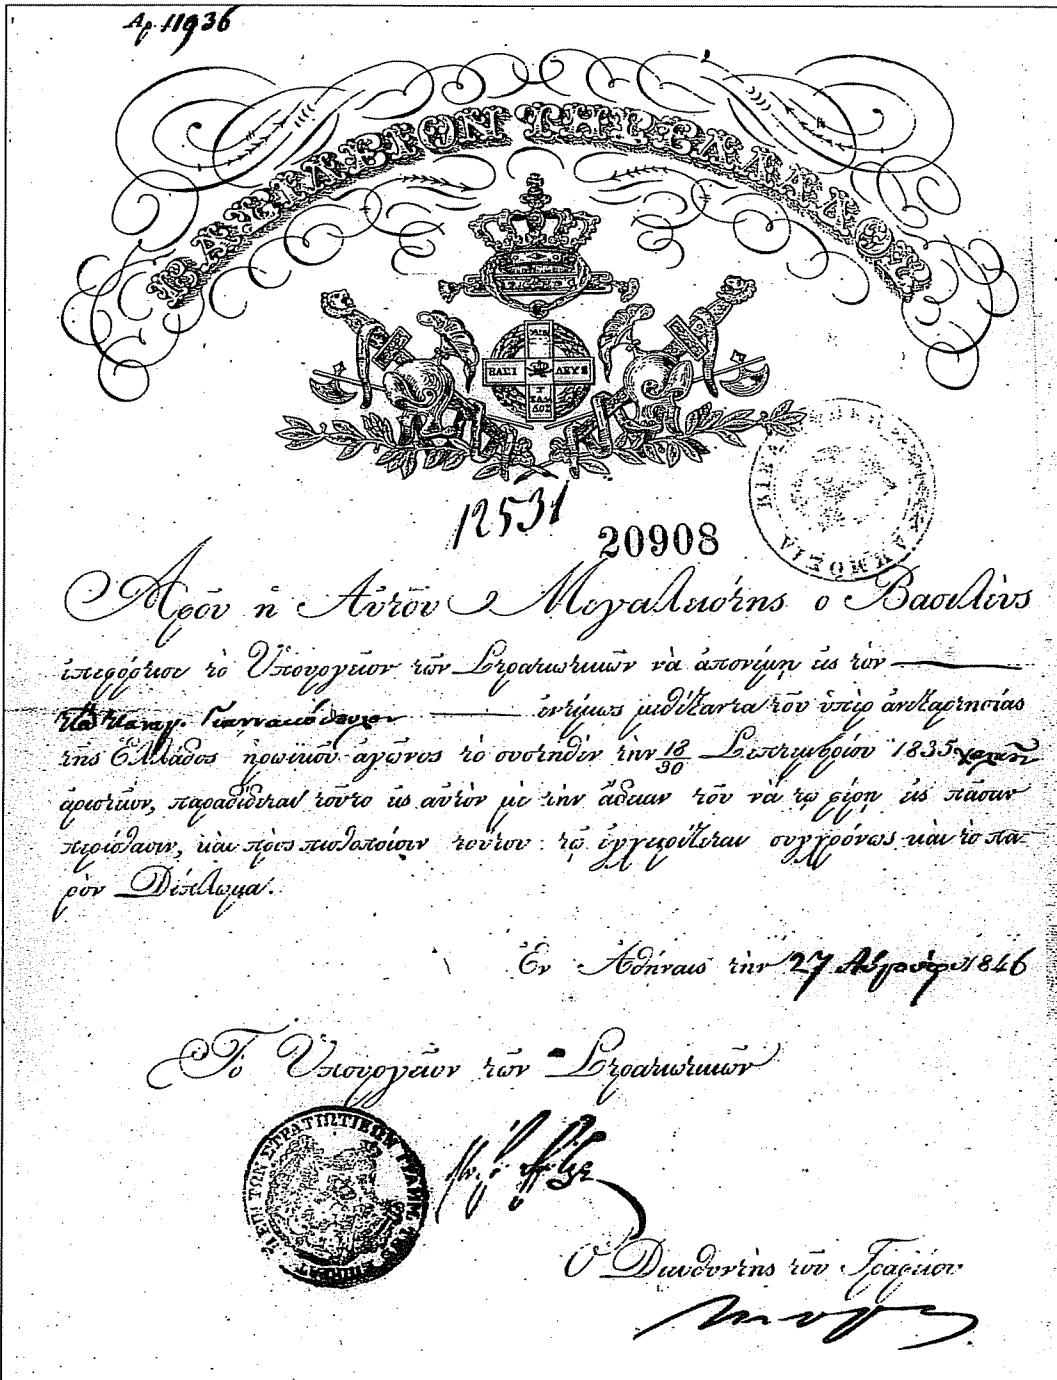 Αρ. 11936
ΒΑΣΙΛΕΙΟΝ ΤΗΣ ΕΛΛΑΔΟΣ
ΒΑΣΙ ΛΕΥΣ
12531
20908
Ἀφοῦ ἡ Αὐτοῦ Μεγαλειότης ὁ Βασιλεὺς
ἐπεφόρτισε τὸ Ὑπουργεῖον τῶν Στρατιωτικῶν νὰ ἀπονέμῃ εἰς τὸν
Παναγ. Γιαννακόπουλον ἐντίμως μεθέξαντα τοῦ ὑπὲρ ἀνεξαρτησίας
τῆς Ἑλλάδος ἡρωϊκοῦ ἀγῶνος τὸ συστηθὲν τὴν 18/30 Σεπτεμβρίου 1835
ἀριστεῖον, παραδίδεται τοῦτο εἰς αὐτὸν μὲ τὴν ἄδειαν τοῦ νὰ τὸ φέρῃ εἰς πᾶσαν
περίστασιν, καὶ πρὸς πιστοποίησιν τούτου τῷ ἐγχειρίζεται συγχρόνως καὶ τὸ πα-
ρὸν Δίπλωμα.
Ἐν Ἀθήναις τὴν 27 Αὐγούστου 1846
Τὸ Ὑπουργεῖον τῶν Στρατιωτικῶν
ΕΠΙ ΤΩΝ ΣΤΡΑΤΙΩΤΙΚΩΝ ΓΡΑΜΜ. ΤΗΣ ΕΠΙΚΡΑΤ.
Ὁ Διευθυντὴς τοῦ Γραφείου